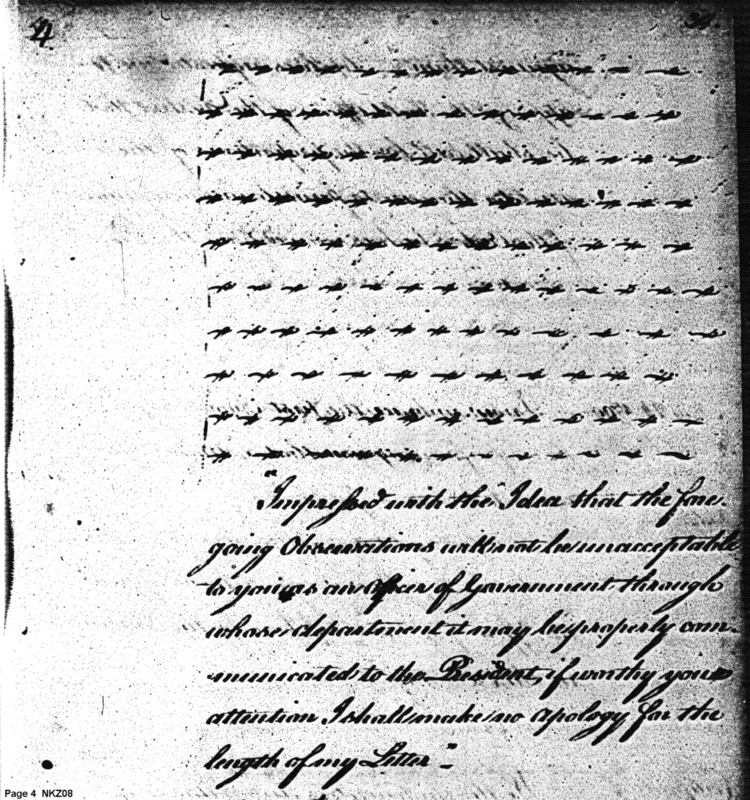 4
"Impressed with the Idea that the fore-
going Observations will not be unacceptable
to you as an officer of Government through
whose department it may be properly com-
municated to the President, if worthy your
attention I shall make no apology for the
length of my Letter"-
Page 4 NKZ08